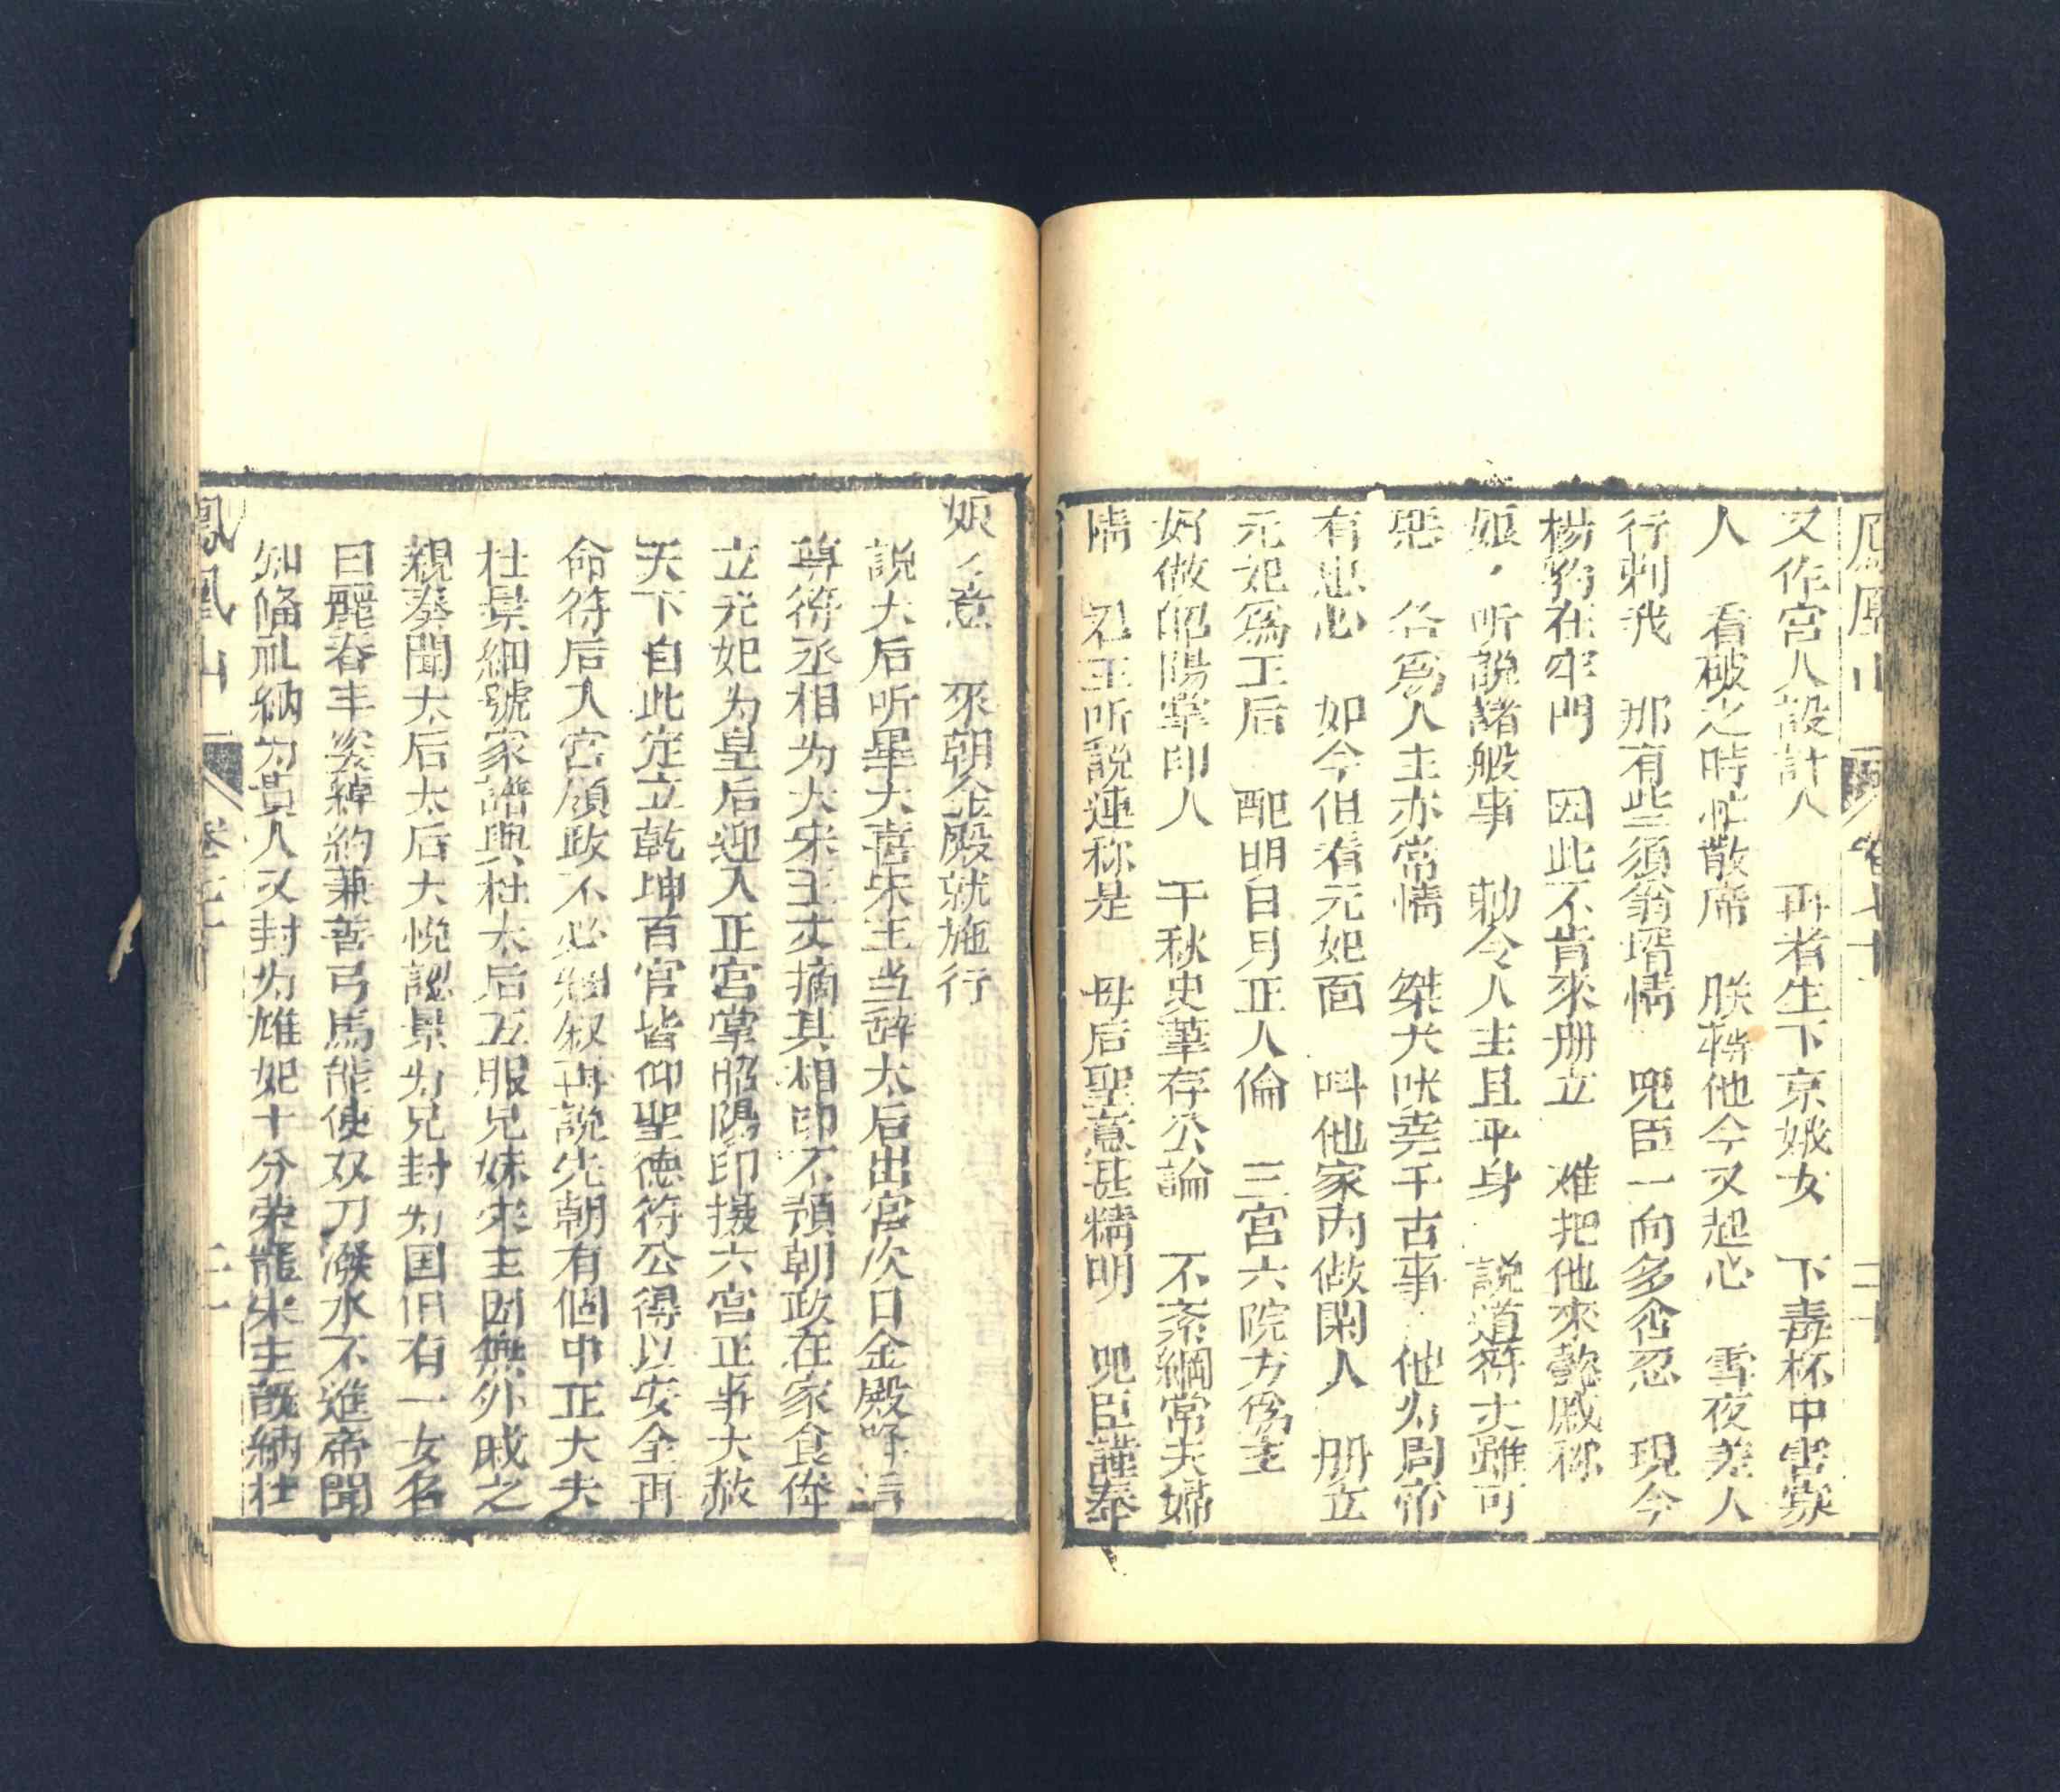 鳳凰山 卷七十 二十
又作宮人設計人 再者生下京娥女 下毒杯中害寡
人 看破之時忙散席 朕轉他今又起心 雪夜差人
行刺我 那有些須翁壻情 兕臣一向多含忍 現今
楊豹在牢門 因此不肯來册立 难把他來懿戚称
娘〻听說諸般事 勅令人主且平身 說道符丈雖可
惡 各爲人主亦常情 桀犬吠堯千古事 他为周帝
有忠心 如今但看元妃面 叫他家內做閑人 册立
元妃爲王后 配明日月正人倫 三宮六院方爲主
好做昭陽掌印人 千秋史筆存公論 不紊綱常夫婦
情 君王所說連称是 母后聖意甚精明 兕臣謹奉
娘〻意 來朝金殿就施行
說太后听畢大喜宋主当辞太后出宮次日金殿呼
尊符丞相为大宋王丈摘其相印不預朝政在家食俸
立元妃为皇后迎入正宮掌昭陽印摄六宮正事大赦
天下自此定立乾坤百官皆仰聖德符公得以安全再
命符后入宮領政不必細叙再說先朝有個中正大夫
杜景細號家譜與杜太后五服兄妹宋主因無外戚之
親奏聞太后太后大悅認景为兄封为国旧有一女名
曰麗春丰姿綽約兼善弓馬能使双刀潑水不進帝聞
知俻礼納为貴人又封为雄妃十分荣寵宋主既納杜
鳳凰山 卷 二十一